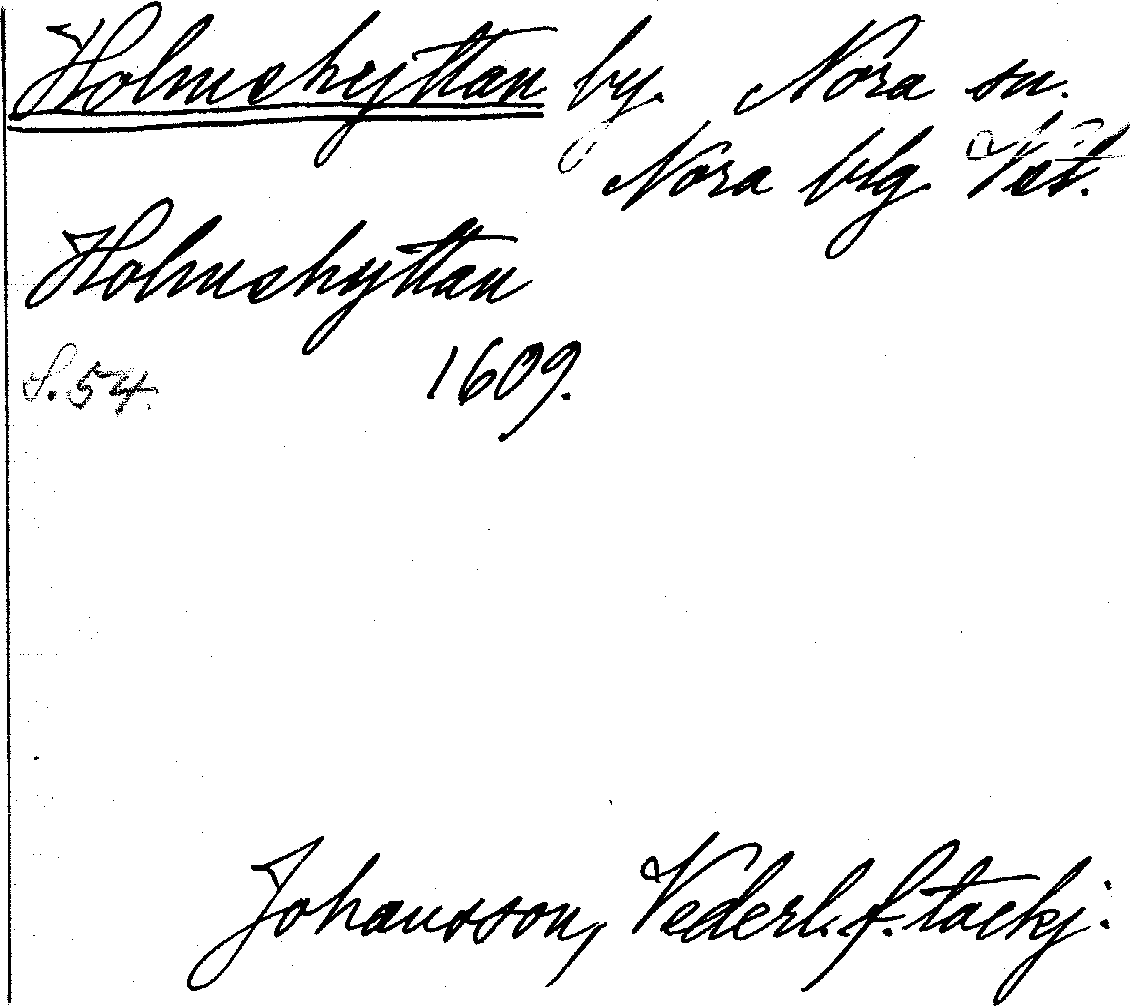 Holmshyttan by. Nora sn.
Nora blg Vstl.
Holmshyttan
S. 54. 1609.
Johansson, Vederl. f. tackj.